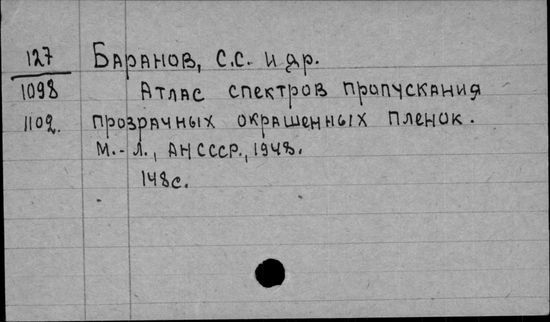 127 Баранов, С.С. и др.
1098 Атлас спектров пропускания
1102. прозрачных окрашенных пленок.
М.-Л., АН СССР, 1948.
148с.